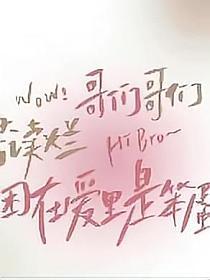 wow! 哥们哥们
Hi Bro~
困在爱里是笨蛋